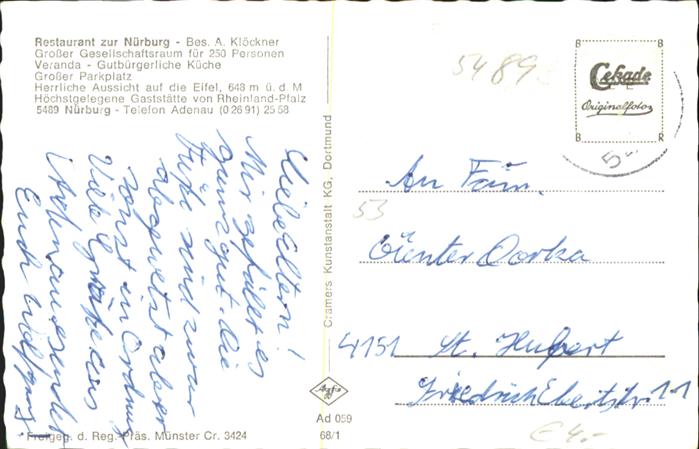 Restaurant zur Nürburg - Bes. A. Klöckner
Großer Gesellschaftsraum für 250 Personen
Veranda - Gutbürgerliche Küche
Großer Parkplatz
Herrliche Aussicht auf die Eifel, 648 m ü. d. M
Höchstgelegene Gaststätte von Rheinland-Pfalz
5489 Nürburg - Telefon Adenau (0 26 91) 25 58
Liebe Eltern!
Mir gefällt es
ganz gut. Die
Füße sind zwar
abgewetzt aber
sonst in Ordnung
Viele Grüße aus
sendet
Euch Wolfgang
Freigeg. d. Reg.-Präs. Münster Cr. 3424
Cramers Kunstanstalt KG, Dortmund
Agfa
Ad 059
68/1
5489
B B
Cekade
Originalfoto
B R
54
An Fam.
53
Günter Dorka
4151 St. Hubert
Friedrich Ebertstr. 11
€ 4.-